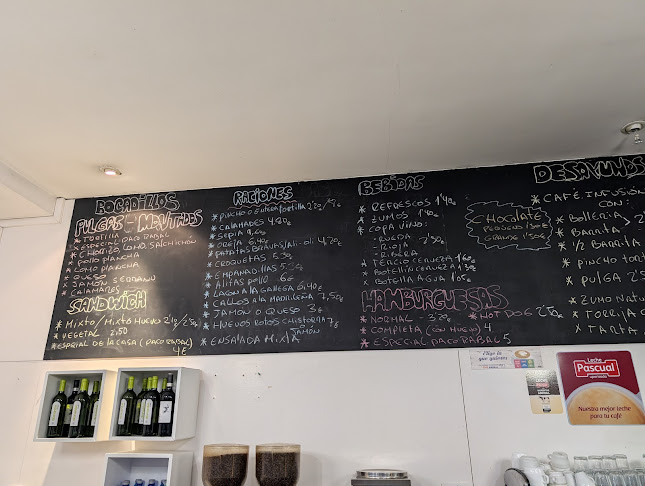 BOCADILLOS
PULGAS - MONTADOS
* TORTILLA
* ESPECIAL PACO RABAL
* CHORIZO, LOMO, SALCHICHÓN
* POLLO PLANCHA
* LOMO PLANCHA
* QUESO
* JAMÓN SERRANO
* CALAMARES
SANDWICH
* MIXTO/MIXTO HUEVO 2'10/2'50
* VEGETAL 2'50
* ESPECIAL DE LA CASA (PACO RABAL)
4€
RACIONES
* PINCHO O
* CALAMARES
* SEPIA
* OREJA 6,40
* PATATAS BRAVAS/ALI-OLI 4,20€
* CROQUETAS
* EMPANADILLAS
* ALITAS POLLO 6€
* LACON A LA GALLEGA 6,40€
* CALLOS A LA MADRILEÑA 7,50€
* JAMON O QUESO
* HUEVOS ROTOS 7€
JAMÓN
* ENSALADA MIXTA
BEBIDAS
* REFRESCOS 1'40€
* ZUMOS 1'40€
* COPA VINO:
- RUEDA
- RIOJA 2'50€
- RIBERA
* TERCIO CERVEZA 1'60€
* BOTELLIN CERVEZA 1'35
* BOTELLA AGUA 1'05€
CHOCOLATE
PEQUEÑO 1'30€
GRANDE 1'50€
HAMBURGUESAS
* NORMAL - 3'20 * HOT DOG
* COMPLETA (CON HUEVO) 4
* ESPECIAL PACO RABAL 5
DESAYUNOS
* CAFÉ, INFUSIÓN
CON:
* BOLLERIA
* BARRITA
* 1/2 BARRITA
* PINCHO TORT
* PULGA
* ZUMO NATU
* TORRIJA
* TARTA
Elige lo
que quieres
Leche
Pascual
Nuestra mejor leche
para tu café